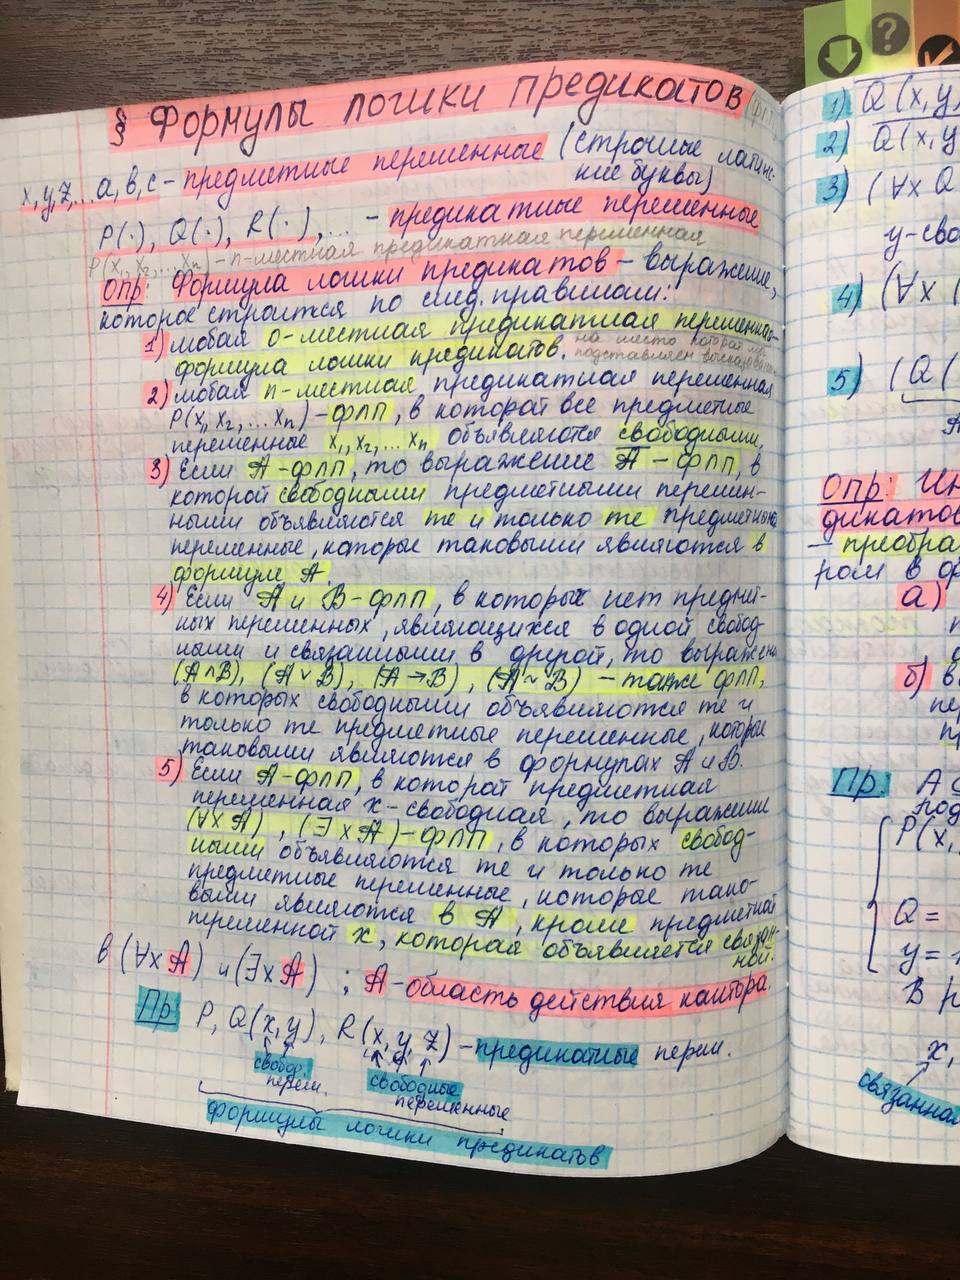 § Формулы логики предикатов
x, y, z, ... a, b, c - предметные переменные (строчные латинс-
кие буквы)
P(·), Q(·), R(·), ... - предикатные переменные
P(x₁, x₂, ... xₙ) - n-местная предикатная переменная
Опр: Формула логики предикатов - выражение,
которое строится по след. правилам:
1) любая 0-местная предикатная переменная-
формула логики предикатов. на место которой мы
подставляем высказывания
2) любая n-местная предикатная переменная
P(x₁, x₂, ... xₙ) - ФЛП, в которой все предметные
переменные x₁, x₂, ... xₙ объявляются свободными,
3) Если A - ФЛП, то выражение A̅ - ФЛП, в
которой свободными предметными перемен-
ными объявляются те и только те предметные
переменные, которые таковыми являются в
формуле A.
4) Если A и B - ФЛП, в которых нет предмет-
ных переменных, являющихся в одной свобод-
ными и связанными в другой, то выражения
(A ∧ B), (A ∨ B), (A → B), (A ~ B) - также ФЛП,
в которых свободными объявляются те и
только те предметные переменные, которые
таковыми являются в формулах A и B.
5) Если A - ФЛП, в которой предметная
переменная x - свободная, то выражения
(∀x A), (∃x A) - ФЛП, в которых свобод-
ными объявляются те и только те
предметные переменные, которые тако-
выми являются в A, кроме предметной
переменной x, которая объявляется связан-
ной.
в (∀x A) и (∃x A) ; A - область действия квантора.
Пр P, Q(x, y), R(x, y, z) - предикатные перем.
свобод. перем. свободные переменные
формулы логики предикатов
1) Q(x, y
2) Q(x, y
3) (∀x Q
y - сво
4) (∀x (
5) (Q(
A
Опр: Ин
дикатов
- преобра
ром в ф
а)
б) в
пе
пр
Пр: A
под
P(x,
Q =
y =
В
x,
связанная